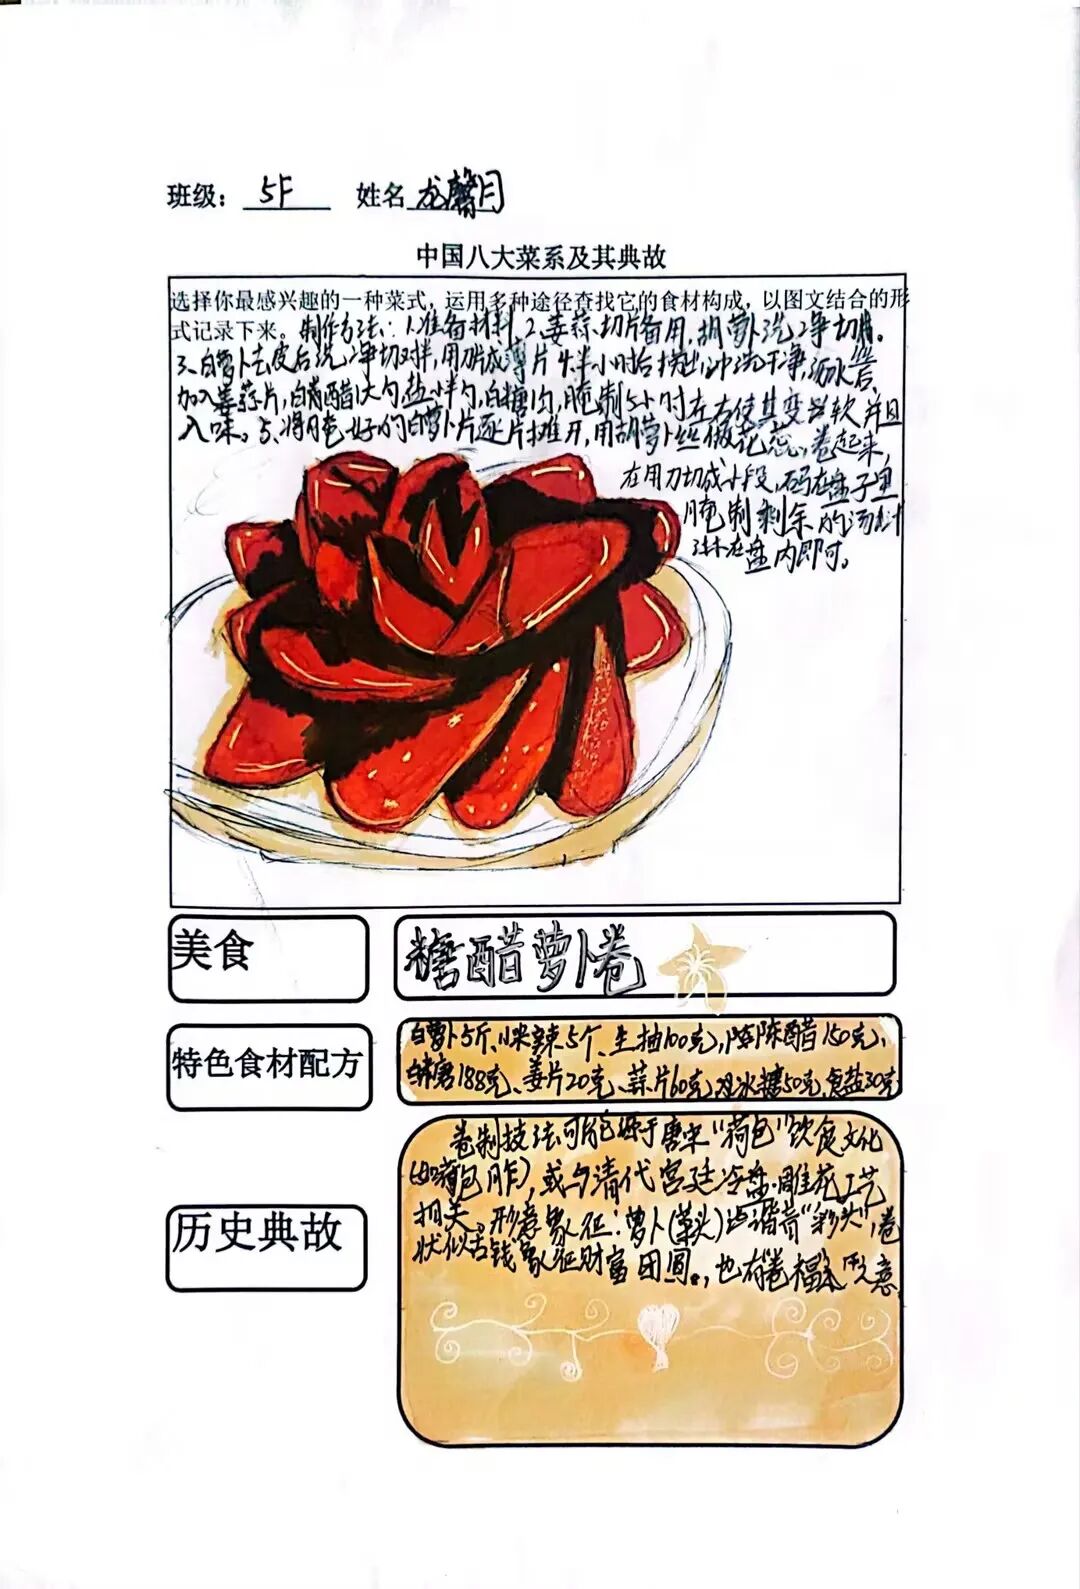 班级：5F 姓名 龙馨月
中国八大菜系及其典故
选择你最感兴趣的一种菜式，运用多种途径查找它的食材构成，以图文结合的形
式记录下来。制作方法：1.准备材料 2、姜蒜切片备用，胡萝卜洗净切丝。
3、白萝卜去皮后洗净切对半，用刀片成薄片 4.半小时后捞出，冲洗干净，沥水
加入姜蒜片，白醋1大勺，盐小半勺，白糖1勺，腌制5小时左右使其变软并且
入味。5、将腌好的白萝卜片逐片摊开，用胡萝卜丝做花蕊，卷起来，
在用刀切成小段，码在盘子里
腌制剩余的汤汁
淋在盘内即可。
美食 糖醋萝卜卷
特色食材配方
白萝卜5斤、小米辣5个、生抽100克，陈醋150克，
白糖188克、姜片20克、蒜片60克，冰糖50克，食盐30克
历史典故
卷制技法可能源于唐宋“荷包”饮食文化
(如荷包胙)，或与清代宫廷冷盘雕花工艺
相关。形意象征：萝卜(菜头)谐音“彩头”，卷
状似古钱象征财富团圆。，也有“卷福”之意